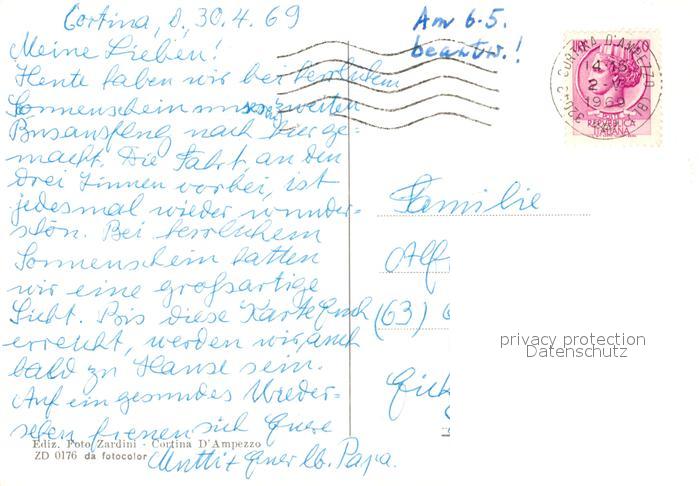 Cortina, d. 30.4.69
Meine Lieben!
Heute haben wir bei herrlichem
Sonnenschein unseren zweiten
Busausflug nach hier ge-
macht. Die Fahrt, an den
Drei Zinnen vorbei, ist
jedesmal wieder wunder-
schön. Bei herrlichem
Sonnenschein hatten
wir eine großartige
Sicht. Bis diese Karte Euch
erreicht, werden wir auch
bald zu Hause sein.
Auf ein gesundes Wieder-
sehen freuen sich Eure
Mutti + Euer lb. Papa.
Ediz. Foto Zardini - Cortina D'Ampezzo
ZD 0176 da fotocolor
Am 6.5.
beantw.!
14-15
1969
REPUBBLICA
ITALIANA
Familie
Alf
(63)
privacy protection
Datenschutz